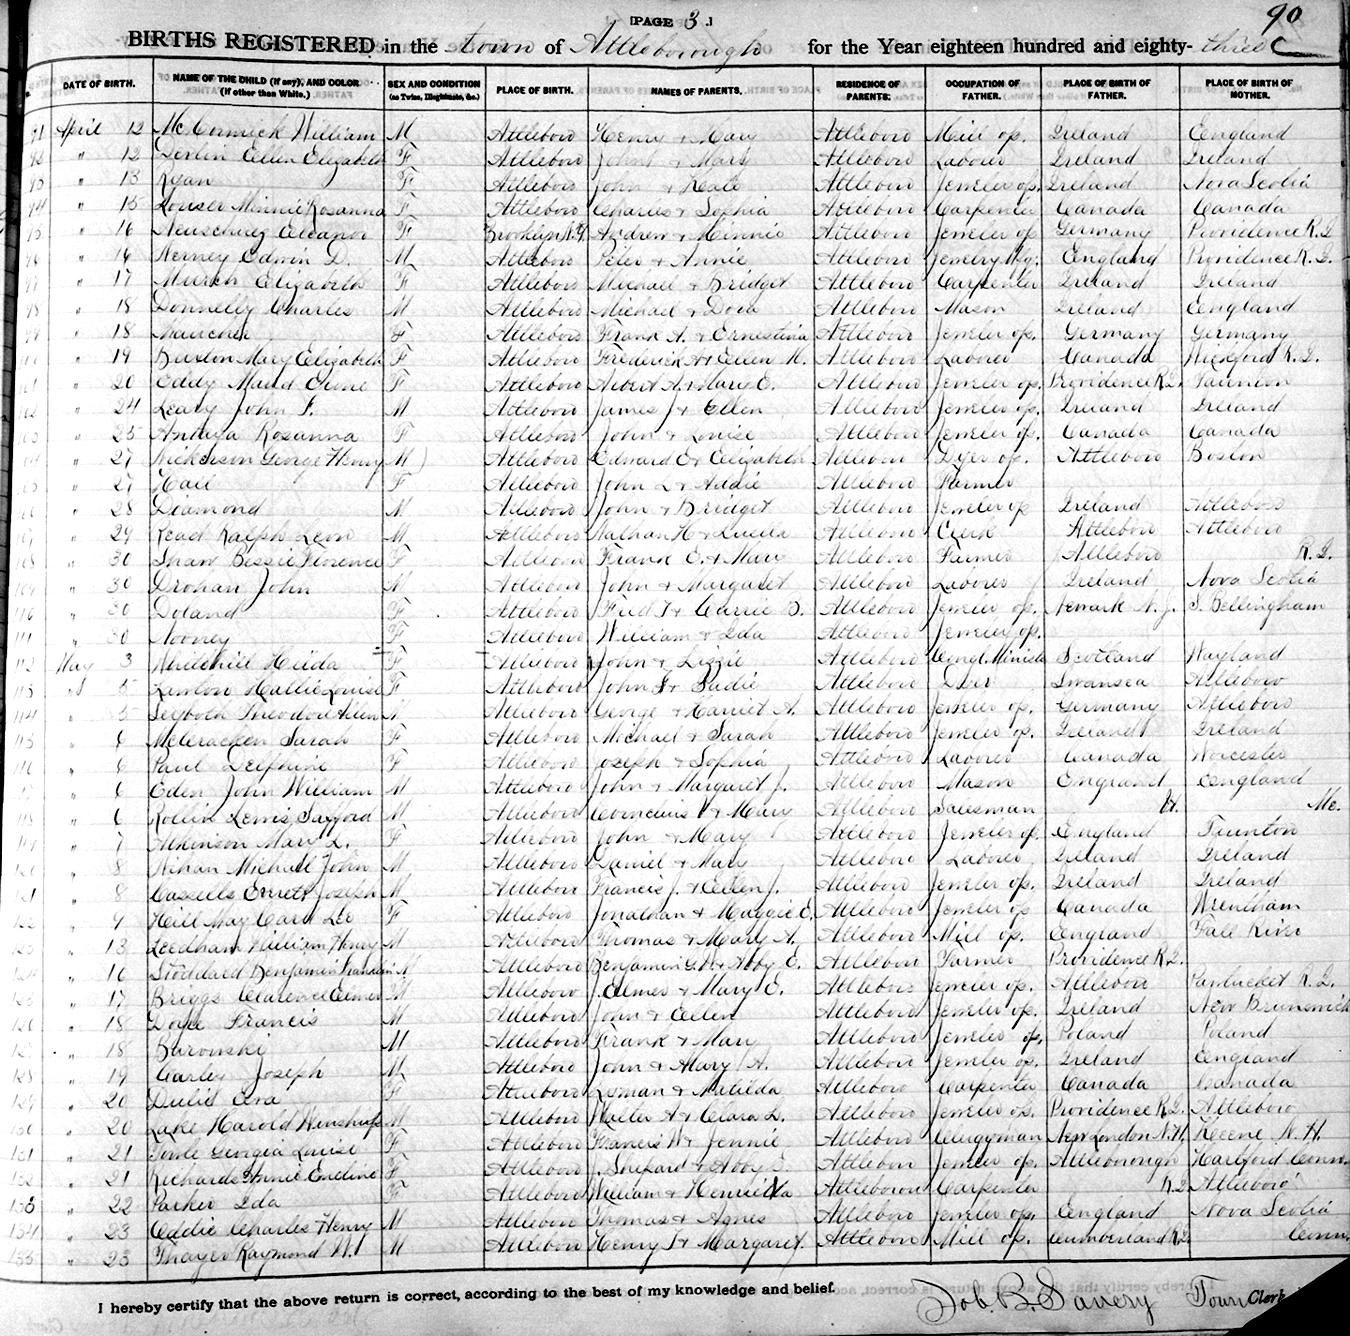 [PAGE 3.]
90
BIRTHS REGISTERED in the town of Attleborough for the Year eighteen hundred and eighty-three
DATE OF BIRTH. NAME OF THE CHILD (if any), AND COLOR. (If other than White.) SEX AND CONDITION (as Twins, Illegitimate, &c.) PLACE OF BIRTH. NAMES OF PARENTS. RESIDENCE OF PARENTS. OCCUPATION OF FATHER. PLACE OF BIRTH OF FATHER. PLACE OF BIRTH OF MOTHER.
91 April 12 McCormick William M Attleboro Henry & Mary Attleboro Mill op. Ireland England
92 " 12 Devlin Ellen Elizabeth F Attleboro John & Mary Attleboro Laborer Ireland Ireland
93 " 13 Ryan F Attleboro John & Kate Attleboro Jeweler op. Ireland Nova Scotia
94 " 15 Minnie Rosanna F Attleboro Charles & Sophia Attleboro Carpenter Canada Canada
95 " 16 Eleanor F Brooklyn N.Y. Andrew & Minnie Attleboro Jeweler op. Germany Providence R.I.
96 " 16 Nerney Edwin D. M Attleboro Peter & Annie Attleboro Jewelry Mfg. England Providence R.I.
97 " 17 Elizabeth F Attleboro Michael & Bridget Attleboro Carpenter Ireland Ireland
98 " 18 Donnelly Charles M Attleboro Michael & Dora Attleboro Mason Ireland England
99 " 18 F Attleboro Frank A. & Ernestina Attleboro Jeweler op. Germany Germany
100 " 19 Mary Elizabeth F Attleboro Frederick & Ellen M. Attleboro Laborer Canada Wickford R.I.
101 " 20 Eddy Maud F Attleboro Albert A. Mary E. Attleboro Jeweler op. Providence R.I. Taunton
102 " 24 Leary John F. M Attleboro James J & Ellen Attleboro Jeweler op. Ireland Ireland
103 " 25 Antaya Rosanna F Attleboro John & Louise Attleboro Jeweler op. Canada Canada
104 " 27 Nickerson George Henry M Attleboro Edward E & Elizabeth Attleboro Dyer op. Attleboro Boston
105 " 27 Hail F Attleboro John L & Addie Attleboro Farmer
106 " 28 Diamond M Attleboro John & Bridget Attleboro Jeweler op Ireland Attleboro
107 " 29 Read Ralph Leon M Attleboro Nathan H & Luella Attleboro Clerk Attleboro Attleboro
108 " 30 Shaw Bessie Florence F Attleboro Frank E. & Mary Attleboro Farmer Attleboro R.I.
109 " 30 Drohan John M Attleboro John & Margaret Attleboro Laborer Ireland Nova Scotia
110 " 30 Doland F Attleboro Fred T & Carrie B. Attleboro Jeweler op. Newark N.J. S. Bellingham
111 " 30 Mooney F Attleboro William & Ida Attleboro Jeweler op.
112 May 3 Whitehill Hilda F Attleboro John & Lizzie Attleboro Congl. Minister Scotland Wayland
113 " 5 Hattie Louise F Attleboro John F & Sadie Attleboro Dyer Swansea Attleboro
114 " 5 Seyboth Theodore Allen M Attleboro George & Harriet A. Attleboro Jeweler op. Germany Attleboro
115 " 6 McCracken Sarah F Attleboro Michael & Sarah Attleboro Jeweler op. Ireland Ireland
116 " 6 Paul Delphine F Attleboro Joseph & Sophia Attleboro Laborer Canada Worcester
117 " 6 Eden John William M Attleboro John & Margaret J. Attleboro Mason England England
118 " 6 Rollin Lewis Safford M Attleboro Cornelius V & Mary Attleboro Salesman Vt. Me.
119 " 7 Atkinson Mary L. F Attleboro John & Mary Attleboro Jeweler op. England Taunton
120 " 8 Nihan Michael John M Attleboro Daniel & Mary Attleboro Laborer Ireland Ireland
121 " 8 Cassells Joseph M Attleboro Francis J. & Ellen J. Attleboro Jeweler op. Ireland Ireland
122 " 9 Hill May Cara Lee F Attleboro Jonathan & Maggie E. Attleboro Jeweler op Canada Wrentham
123 " 13 Leedham William Henry M Attleboro Thomas & Mary A. Attleboro Mill op. England Fall River
124 " 16 Stoddard Benjamin Franklin M Attleboro Benjamin G.W. & Abby E. Attleboro Farmer Providence R.I.
125 " 17 Briggs Clarence Elmer M Attleboro J. Elmer & Mary E. Attleboro Jeweler op. Attleboro Pawtucket R.I.
126 " 18 Doyle Francis M Attleboro John & Ellen Attleboro Jeweler op. Ireland New Brunswick
127 " 18 Barowski M Attleboro Frank & Mary Attleboro Jeweler op. Poland Poland
128 " 19 Carley Joseph M Attleboro John & Mary A. Attleboro Jeweler op. Ireland England
129 " 20 F Attleboro & Matilda Attleboro Carpenter Canada Canada
130 " 20 Lake Harold Winthrop M Attleboro Walter A & Clara L. Attleboro Jeweler op. Providence R.I. Attleboro
131 " 21 Towle Georgia Louise F Attleboro Francis W & Jennie Attleboro Clergyman New London N.H. Keene N.H.
132 " 21 Richards Annie Emeline F Attleboro J. Shepard & Abby S. Attleboro Jeweler op. Attleborough Hartford Conn.
133 " 22 Parker Ida F Attleboro William & Henrietta Attleboro Carpenter R.I. Attleboro
134 " 23 Eddie Charles Henry M Attleboro Thomas & Agnes Attleboro Jeweler op. England Nova Scotia
135 " 23 Thayer Raymond W. M Attleboro Henry F & Margaret. Attleboro Mill op. Cumberland R.I. Conn.
I hereby certify that the above return is correct, according to the best of my knowledge and belief.
Job. B. Savery Town Clerk